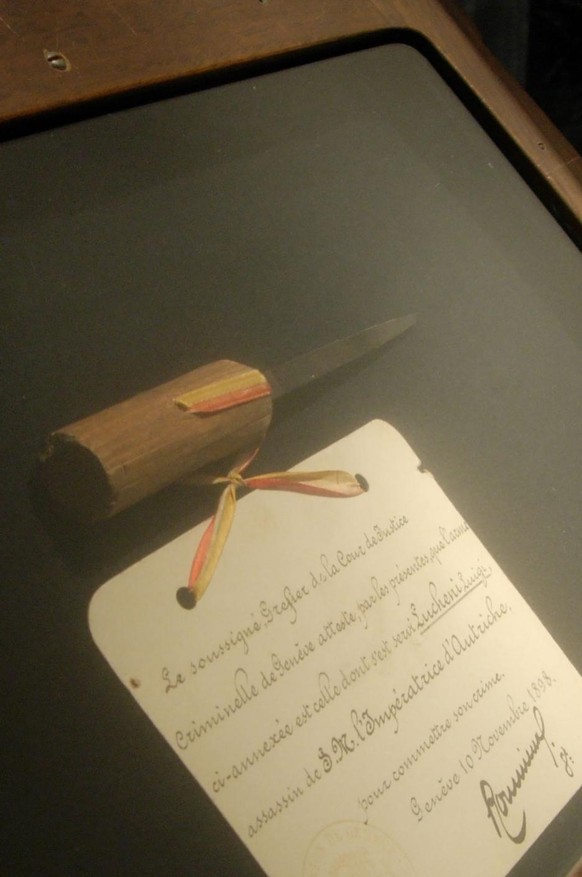 Le soussigné, Greffier de la Cour de Justice
Criminelle de Genève atteste, par les présentes, que l'arme
ci-annexée est celle dont s'est servi Lucheni Luigi,
assassin de S. M. l'Impératrice d'Autriche,
pour commettre son crime.
Genève 10 Novembre 1898.